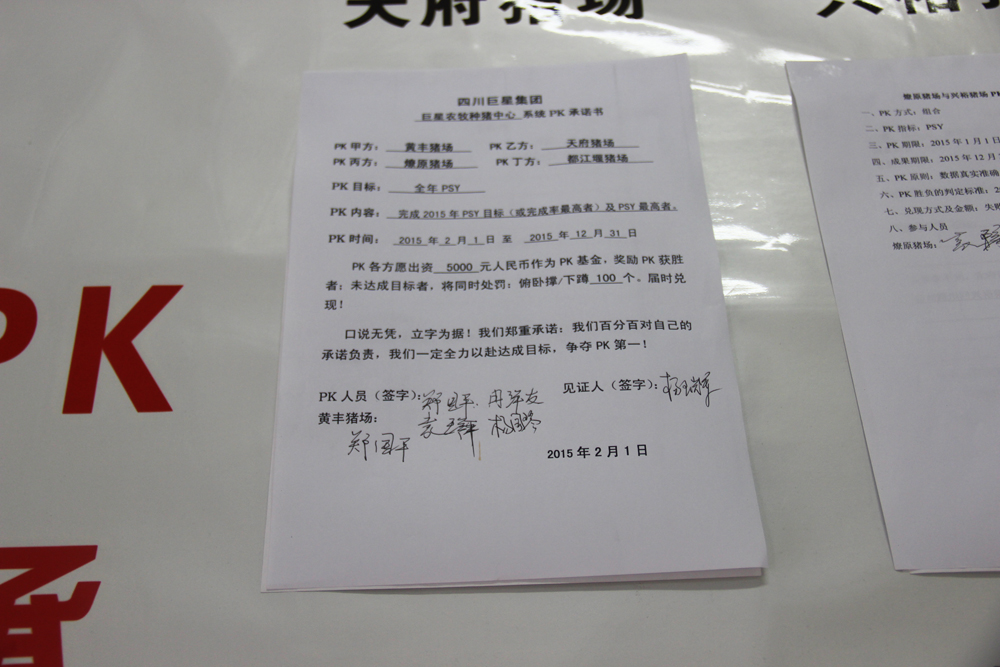 天府猪场
四川巨星集团
巨星农牧种猪中心 系统 PK 承诺书
PK 甲方： 黄丰猪场 PK 乙方： 天府猪场
PK 丙方： 燎原猪场 PK 丁方： 都江堰猪场
PK 目标： 全年 PSY
PK 内容： 完成 2015 年 PSY 目标（或完成率最高者）及 PSY 最高者。
PK 时间： 2015 年 2 月 1 日 至 2015 年 12 月 31 日
PK 各方愿出资 5000 元人民币作为 PK 基金，奖励 PK 获胜
者；未达成目标者，将同时处罚：俯卧撑/下蹲 100 个。届时兑
现！
口说无凭，立字为据！我们郑重承诺：我们百分百对自己的
承诺负责，我们一定全力以赴达成目标，争夺 PK 第一！
PK 人员（签字）： 见证人（签字）：
黄丰猪场：
郑国平
2015 年 2 月 1 日
燎原猪场与兴裕猪场 PK
一、PK 方式：组合
二、PK 指标：PSY
三、PK 期限：2015 年 1 月 1 日
四、成果期限：2015 年 12 月
五、PK 原则：数据真实准确
六、PK 胜负的判定标准：
七、兑现方式及金额：失败
八、参与人员
燎原猪场：
PK